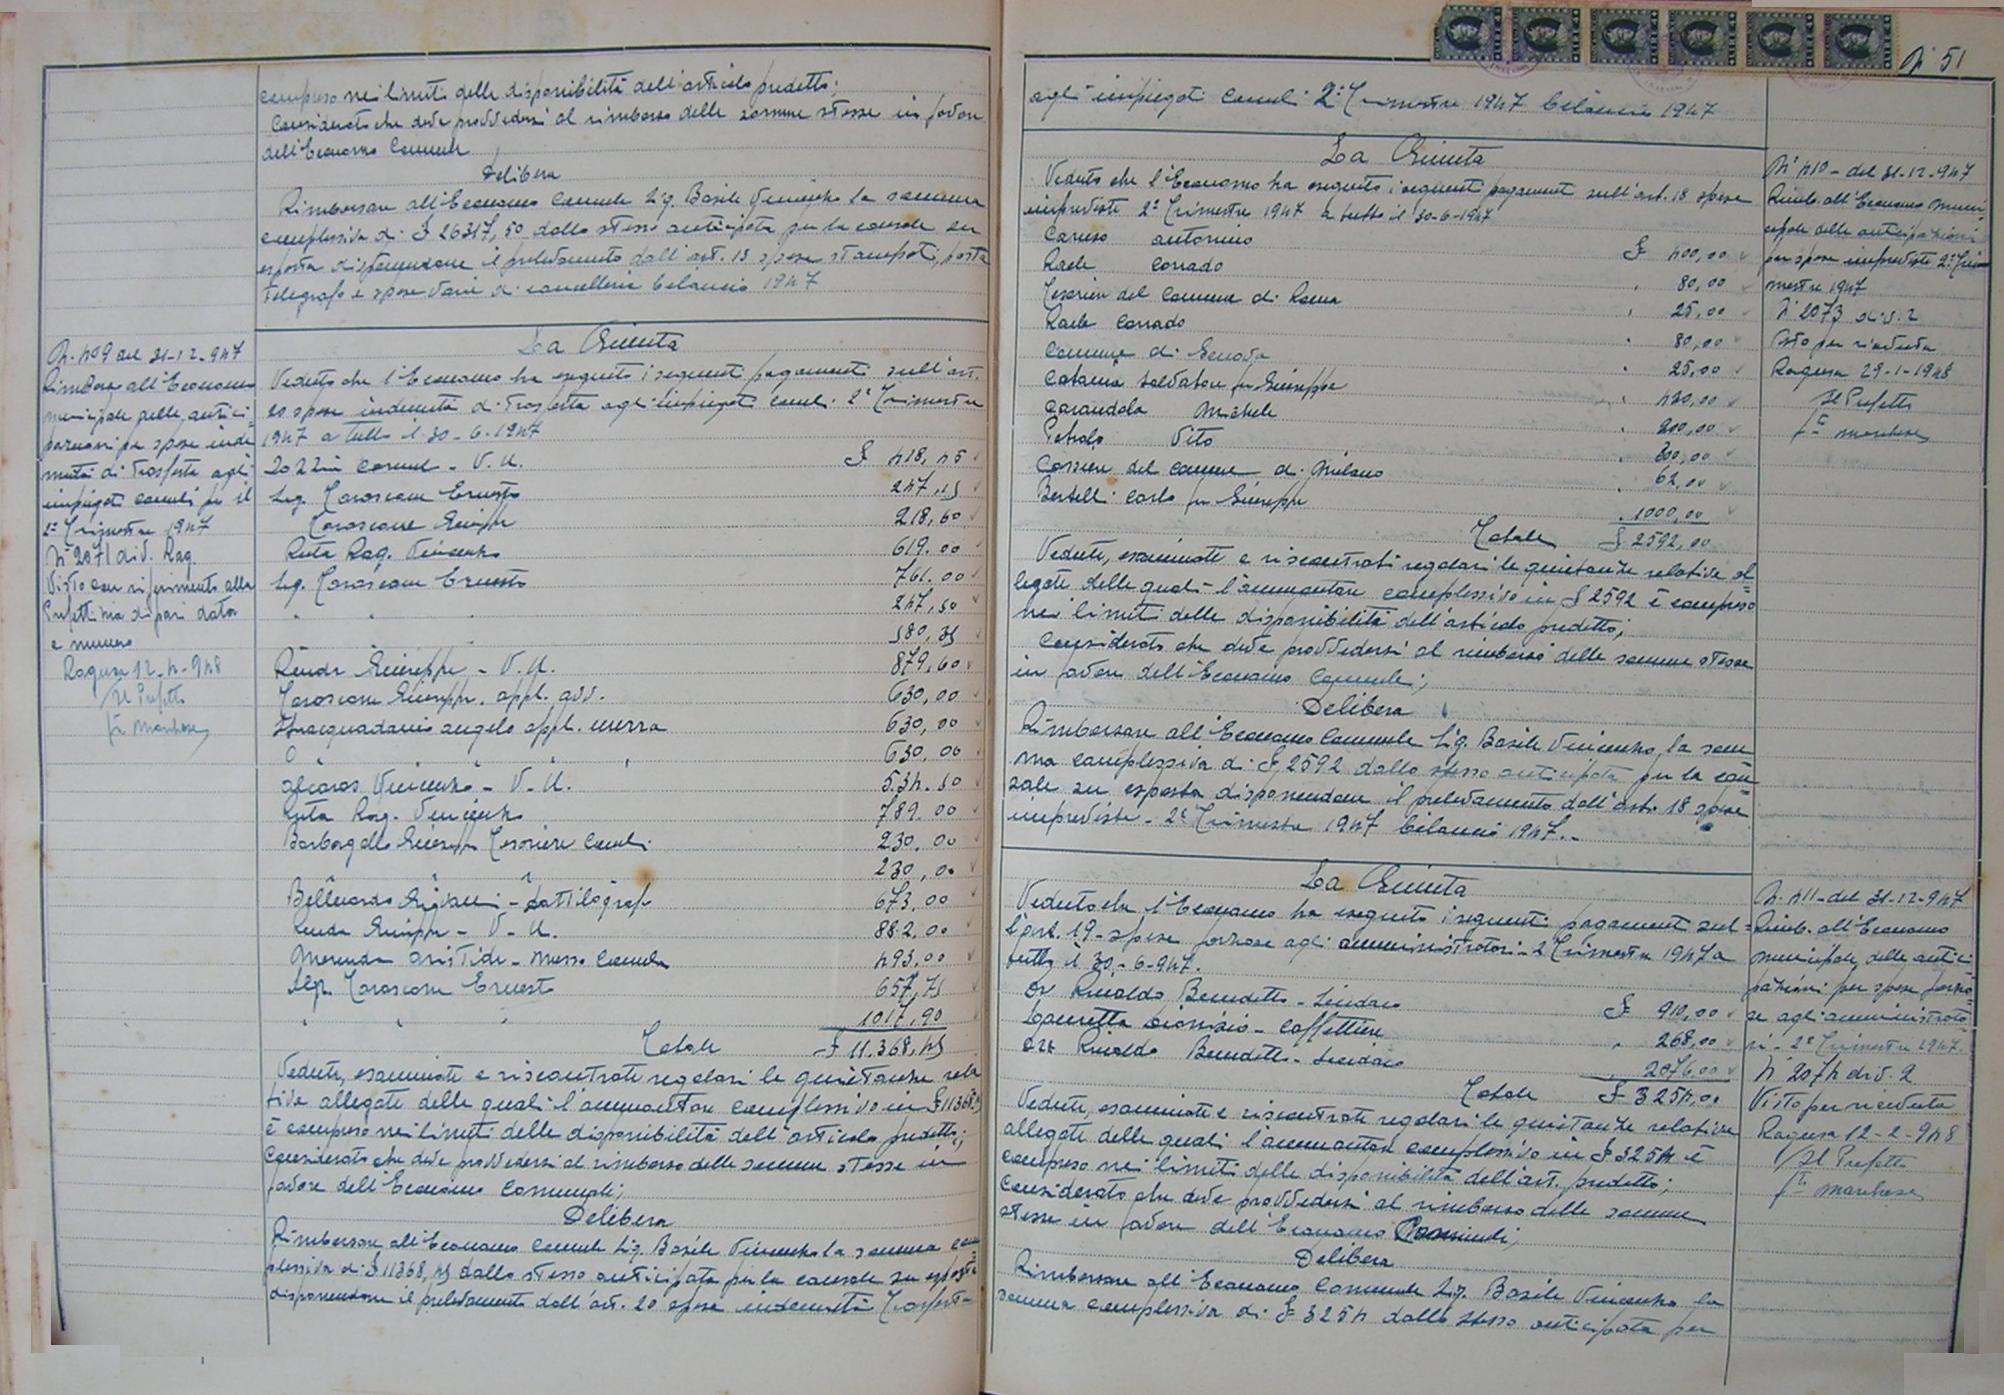 compreso nei limiti delle disponibilità dell'articolo predetto;
Considerato che deve provvedersi al rimborso delle somme stesse in favore
dell'Economo Comunale
Delibera
Rimborsare all'Economo Comunale Sig. Basile Vincenzo la somma
complessiva di £ 26317,50 dallo stesso anticipata per la causale su
esposta disponendone il prelevamento dall'art. 13 spese stampati, posta
telegrafo e spese varie di cancelleria bilancio 1947
N. 409 del 31-12-947
Rimborso all'Economo
municipale delle antici
pazioni per spese inden
nità di trasferta agli
impiegati comunali per il
2° Trimestre 1947
N° 2071 div. Rag.
Visto con riferimento alla
Prefettizia di pari data
e numero
Ragusa 12-4-948
Il Prefetto
fto Marchese
La Giunta
Veduto che l'Economo ha eseguito i seguenti pagamenti sull'art.
20 spese indennità di trasferta agli impiegati comli. 2° Trimestre
1947 a tutto il 30-6-1947
V. U. £ 418,45
Sig. Ernesto 247,15
Giuseppe 218,60
Ruta Rag. Vincenzo 619.00
Sig. Ernesto 761.00
" " " 247,50
580,35
Giuseppe - V. U. 879,60
Giuseppe. appl. avv. 630,00
angelo appl. 630,00
" " " 630,00
Vincenzo - V. U. 534.50
Ruta Rag. Vincenzo 789.00
Giuseppe Tesoriere Comle. 230.00
" " 230,00
Giovanni - Dattilografo 673.00
Giuseppe - V - U. 882.00
Aristide - Messo Comunale 493.00
Ernesto 657,75
" " " 1017,90
Totale £ 11.368,45
Vedute, esaminate e riscontrate regolari le quietanze rela
tive allegate delle quali l'ammontare complessivo in £ 11368,45
è compreso nei limiti delle disponibilità dell'articolo predetto;
Considerato che deve provvedersi al rimborso delle somme stesse in
favore dell'Economo Comunale;
Delibera
Rimborsare all'Economo Comunale Sig. Basile Vincenzo la somma com
plessiva di £ 11368,45 dallo stesso anticipata per la causale su esposta
disponendone il prelevamento dall'art. 20 spese indennità trasferta
N° 51
agli impiegati comunli: 2° Trimestre 1947 bilancio 1947
La Giunta
Veduto che l'Economo ha eseguito i seguenti pagamenti sull'art. 18 spese
impreviste 2° Trimestre 1947 a tutto il 30-6-1947
Caruso Antonino £ 400,00
Corrado " 80,00
Tesoriere del Comune di Roma " 25,00
Corrado " 80,00
Comune di Genova " 25,00
Catania Salvatore fu Giuseppe " 420,00
Michele " 200,00
Vito " 300,00
del Comune di Milano " 62,00
Carlo fu Giuseppe " 1000,00
Totale £ 2592,00
Vedute, esaminate e riscontrati regolari le quietanze relative al
legate delle quali l'ammontare complessivo in £ 2592 è compreso
nei limiti delle disponibilità dell'articolo predetto;
Considerato che deve provvedersi al rimborso delle somme stesse
in favore dell'Economo Comunale;
Delibera
Rimborsare all'Economo Comunale Sig. Basile Vincenzo, la som
ma complessiva di £ 2592 dallo stesso anticipata per la cau
sale su esposta disponendone il prelevamento dall'art. 18 spese
impreviste - 2° Trimestre 1947 bilancio 1947.-
N° 410 - del 31-12-947
Rimb. all'Economo muni
cipale delle anticipazioni
per spese impreviste 2° Tri
mestre 1947
N° 2073 div. 2
Visto per ricevuta
Ragusa 29-1-1948
Il Prefetto
fto Marchese
La Giunta
Veduto che l'Economo ha eseguito i seguenti pagamenti sul
l'art. 19 - spese forzose agli amministratori - 2° Trimestre 1947 a
tutto il 30-6-947.
Rinaldo Benedetto - Sindaco £ 910,00
Dionisio - Caffettiere " 268,00
Rinaldo Benedetto - Sindaco " 2076,00
Totale £ 3254,00
Vedute, esaminate e riscontrate regolari le quietanze relative
allegate delle quali l'ammontare complessivo in £ 3254 è
compreso nei limiti delle disponibilità dell'art. predetto;
Considerato che deve provvedersi al rimborso delle somme
stesse in favore dell'Economo Comunale;
Delibera
Rimborsare all'Economo Comunale Sig. Basile Vincenzo la
somma complessiva di £ 3254 dallo stesso anticipata per
N. 411 - del 31-12-947
Rimb. all'Economo
municipale delle antici
pazioni per spese forzo
se agli amministrato
ri - 2° Trimestre 1947.
N° 2074 div. 2
Visto per ricevuta
Ragusa 12-2-948
Il Prefetto
fto Marchese